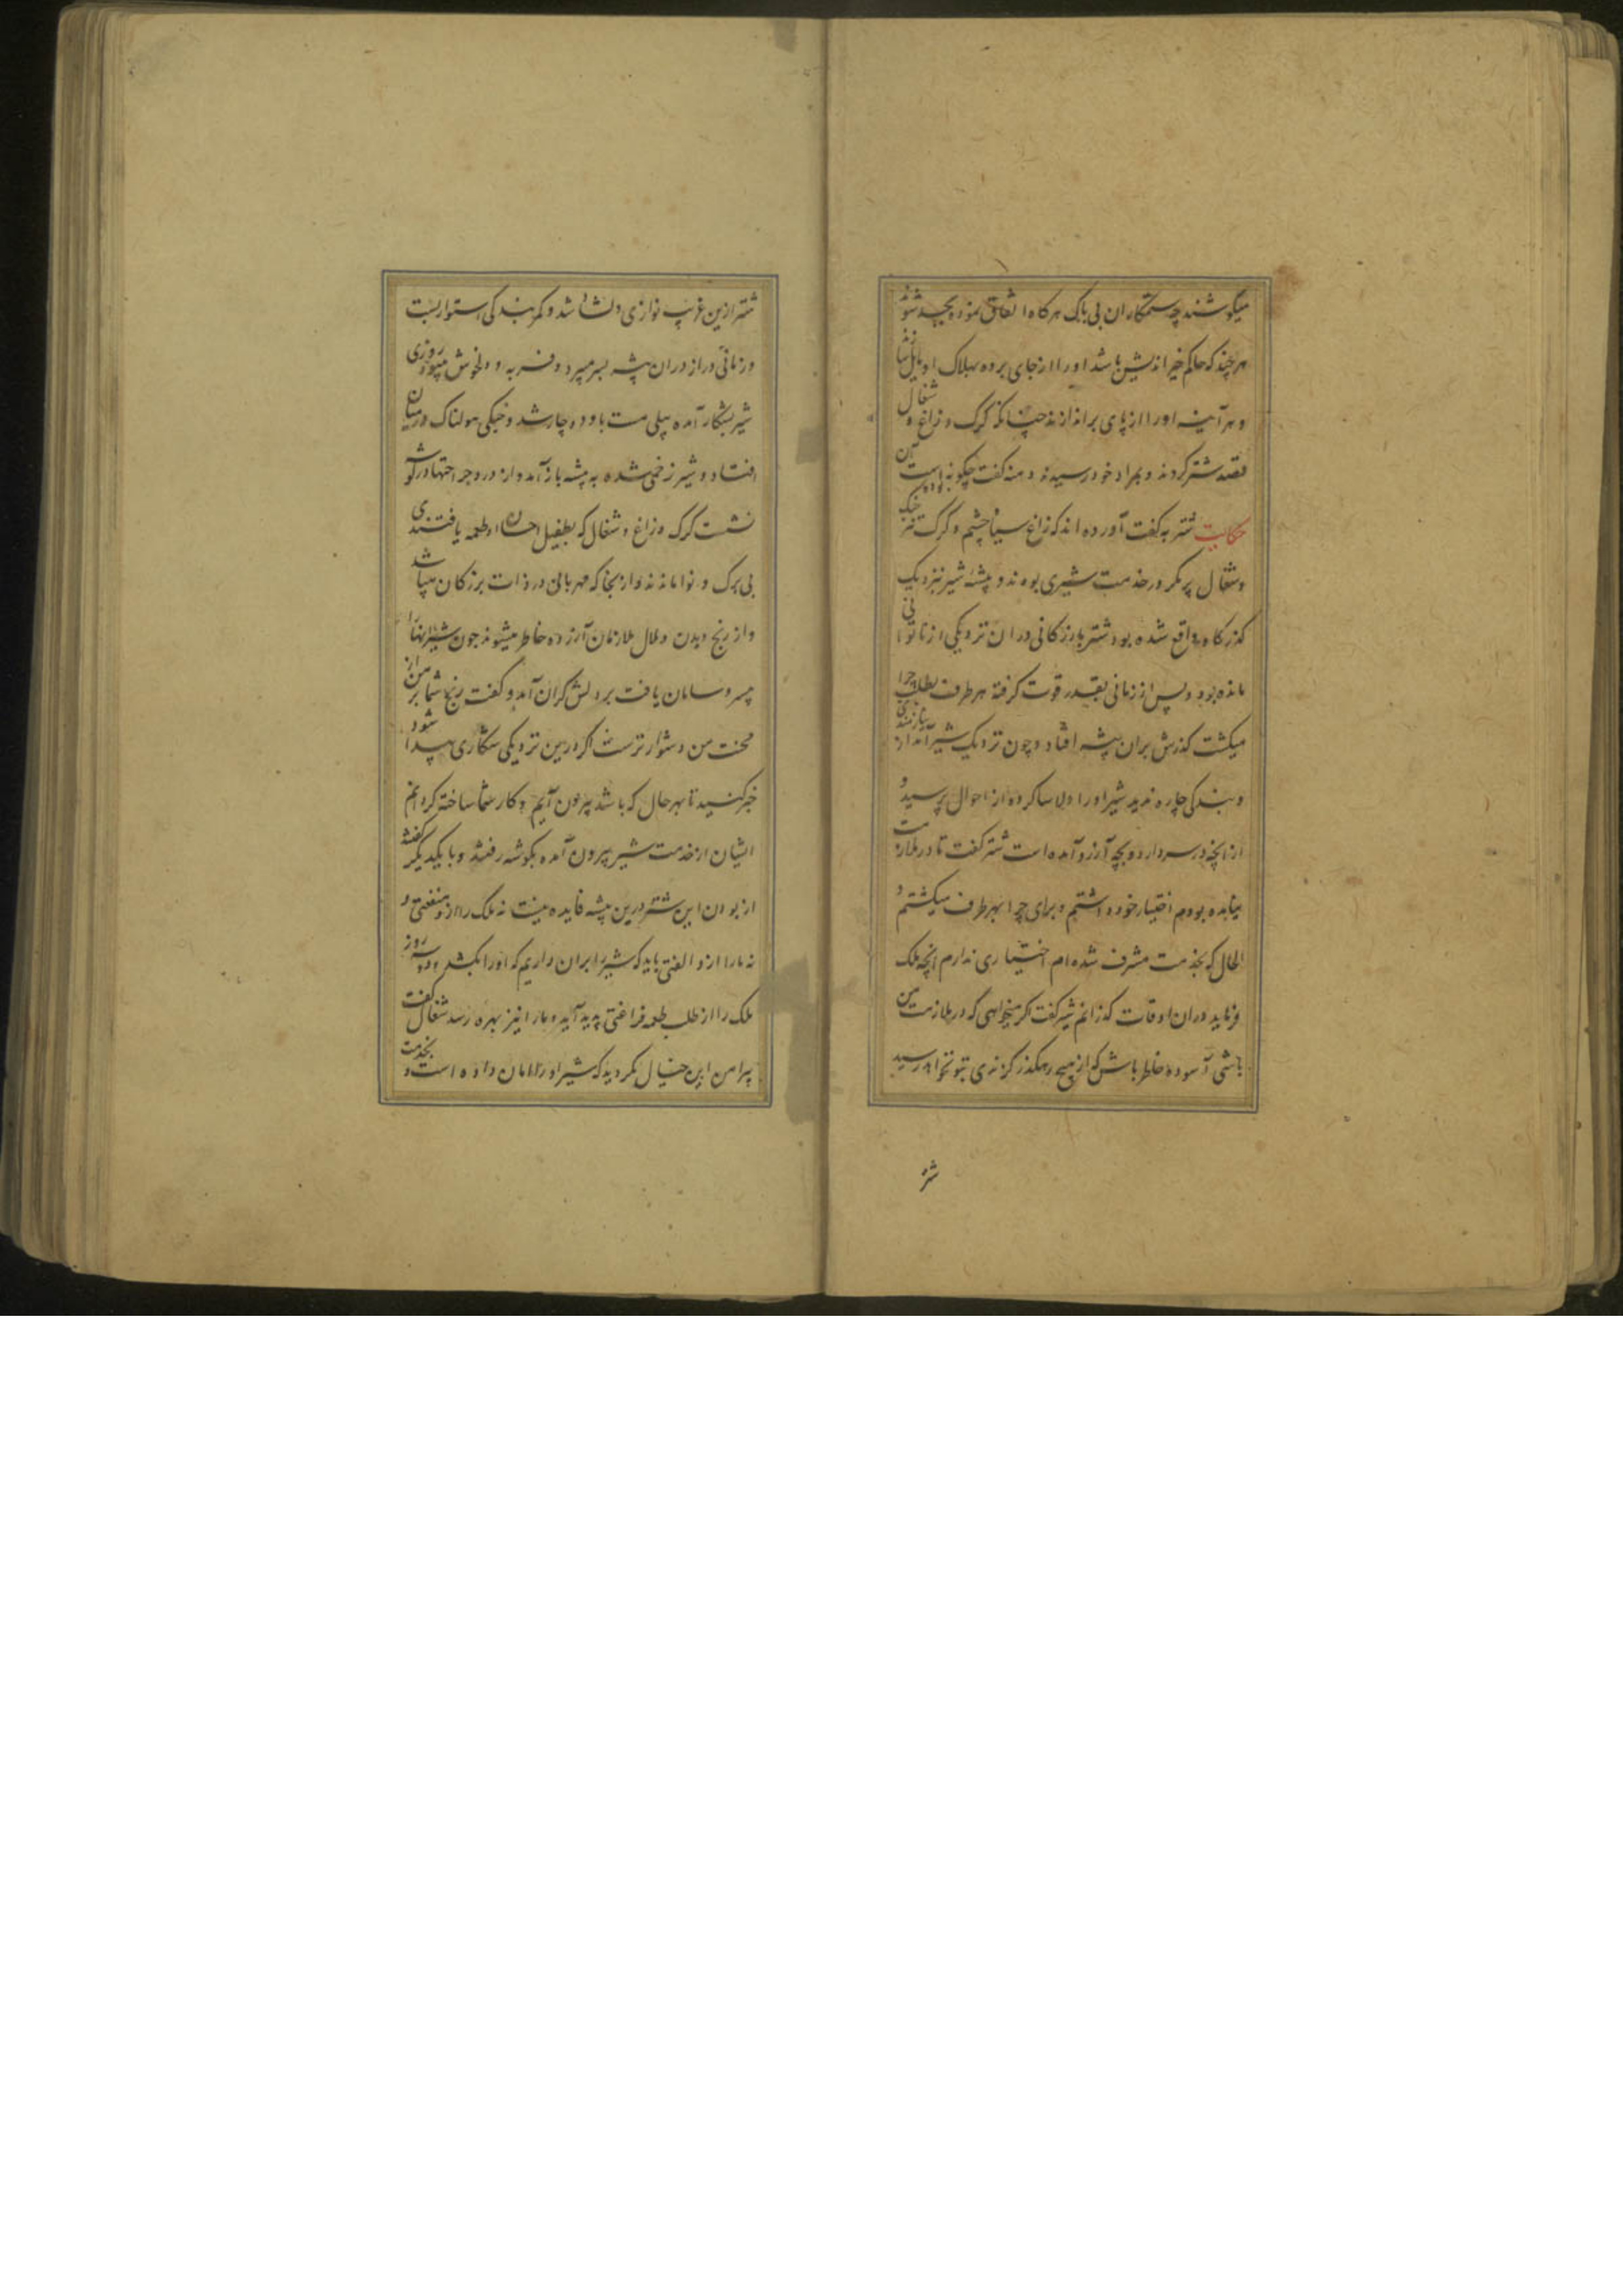 میکوشند چه ستمکاران بی باک هرکاه اتفاق نموده یکجهت شوند
هر چند که حاکم خیر اندیش باشد اورا از جای برده بهلاک او مایل
و هر آینه اورا از پای براندازند چنانکه کرک و زاغ و شغال
قصد شتر کردند و بمراد خود رسیدند دمنه کفت چکونه بوده است آن
حکایت شتر به کفت آورده اند که زاغ سیاه چشم و کرک تیز چنک
و شغال پر مکر در خدمت شیری بودند و بیشه شیر نزدیک
کذرکاه واقع شده بود شتر بازرکانی دران نزدیکی از ناتوانی
مانده بود و پس از زمانی بقدر قوت کرفته هر طرف بطلب چرا
میکشت کذرش بران بیشه افتاد و چون نزدیک شیر آمد از نیازمندی
و بندکی چاره ندید شیر اورا دلاسا کرده از احوال پرسید و
از انچه در سر دارد و بچه آرزو آمده است شتر کفت تا در ملازمت
نیامده بودم اختیار خود داشتم و برای چرا بهر طرف میکشتم و
الحال که بخدمت مشرف شده ام اختیاری ندارم انچه ملک
فرماید دران اوقات کذرانم شیر کفت اکر میخواهی که در ملازمت من
باشی آسوده خاطر باش که از هیچ رهکذر کزندی بتو نخواهد رسید
شتر
شتر ازین غریب نوازی دلشاد شد و کمر بندکی استوار بست
و زمانی دراز دران بیشه بسر میبرد و فربه و دلخوش میبود روزی
شیر بشکار آمده پیلی مست با او دوچار شد و جنکی هولناک درمیان
افتاد و شیر زخمی شده به بیشه باز آمد و از درد جراحتها در کوشه
نشست کرک و زاغ و شغال که بطفیل احسان او طعمه یافتندی
بی برک و نوا ماندند و از بنجا که مهربانی در ذات بزرکان میباشد
و از رنج دیدن و ملال ملازمان آزرده خاطر میشوند چون شیر اینهارا
بیسر و سامان یافت بر دلش کران آمد و کفت رنج شما بر من از
محنت من دشوارترست اکر درین نزدیکی شکاری پیدا شود
خبر کنید تا بهر حال که باشد بیرون آیم و کار شما ساخته کردانم
ایشان از خدمت شیر بیرون آمده بکوشه رفتند و با یکدیکر کفتند
از بودن این شتر درین بیشه فایده نیست نه ملک را ازو منفعتی و
نه مارا ازو الفتی باید که شیر را بران داریم که اورا بکشد و دو سه روز
ملک را از طلب طعمه فراغتی پدید آید و مارا نیز بهره رسد شغال کفت
پیرامن این خیال نکردید که شیر اورا امان داده است و بخدمت